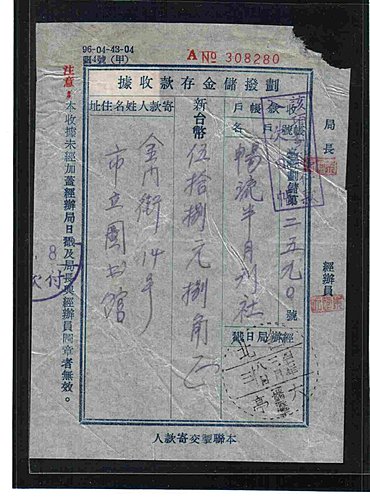 96-04-43-04
劃4號(甲)
A № 308280
劃撥儲金存款收據
收款帳號
劃儲第二五九〇號
帳戶戶名
暢流半月刊社
新台幣
伍拾捌元捌角正
寄款人姓名住址
市立圖書館
局長
經辦員
經辦局日戳
注意:本收據未經加蓋經辦局日戳及局長與經辦員圖章者無效。
本聯掣交寄款人